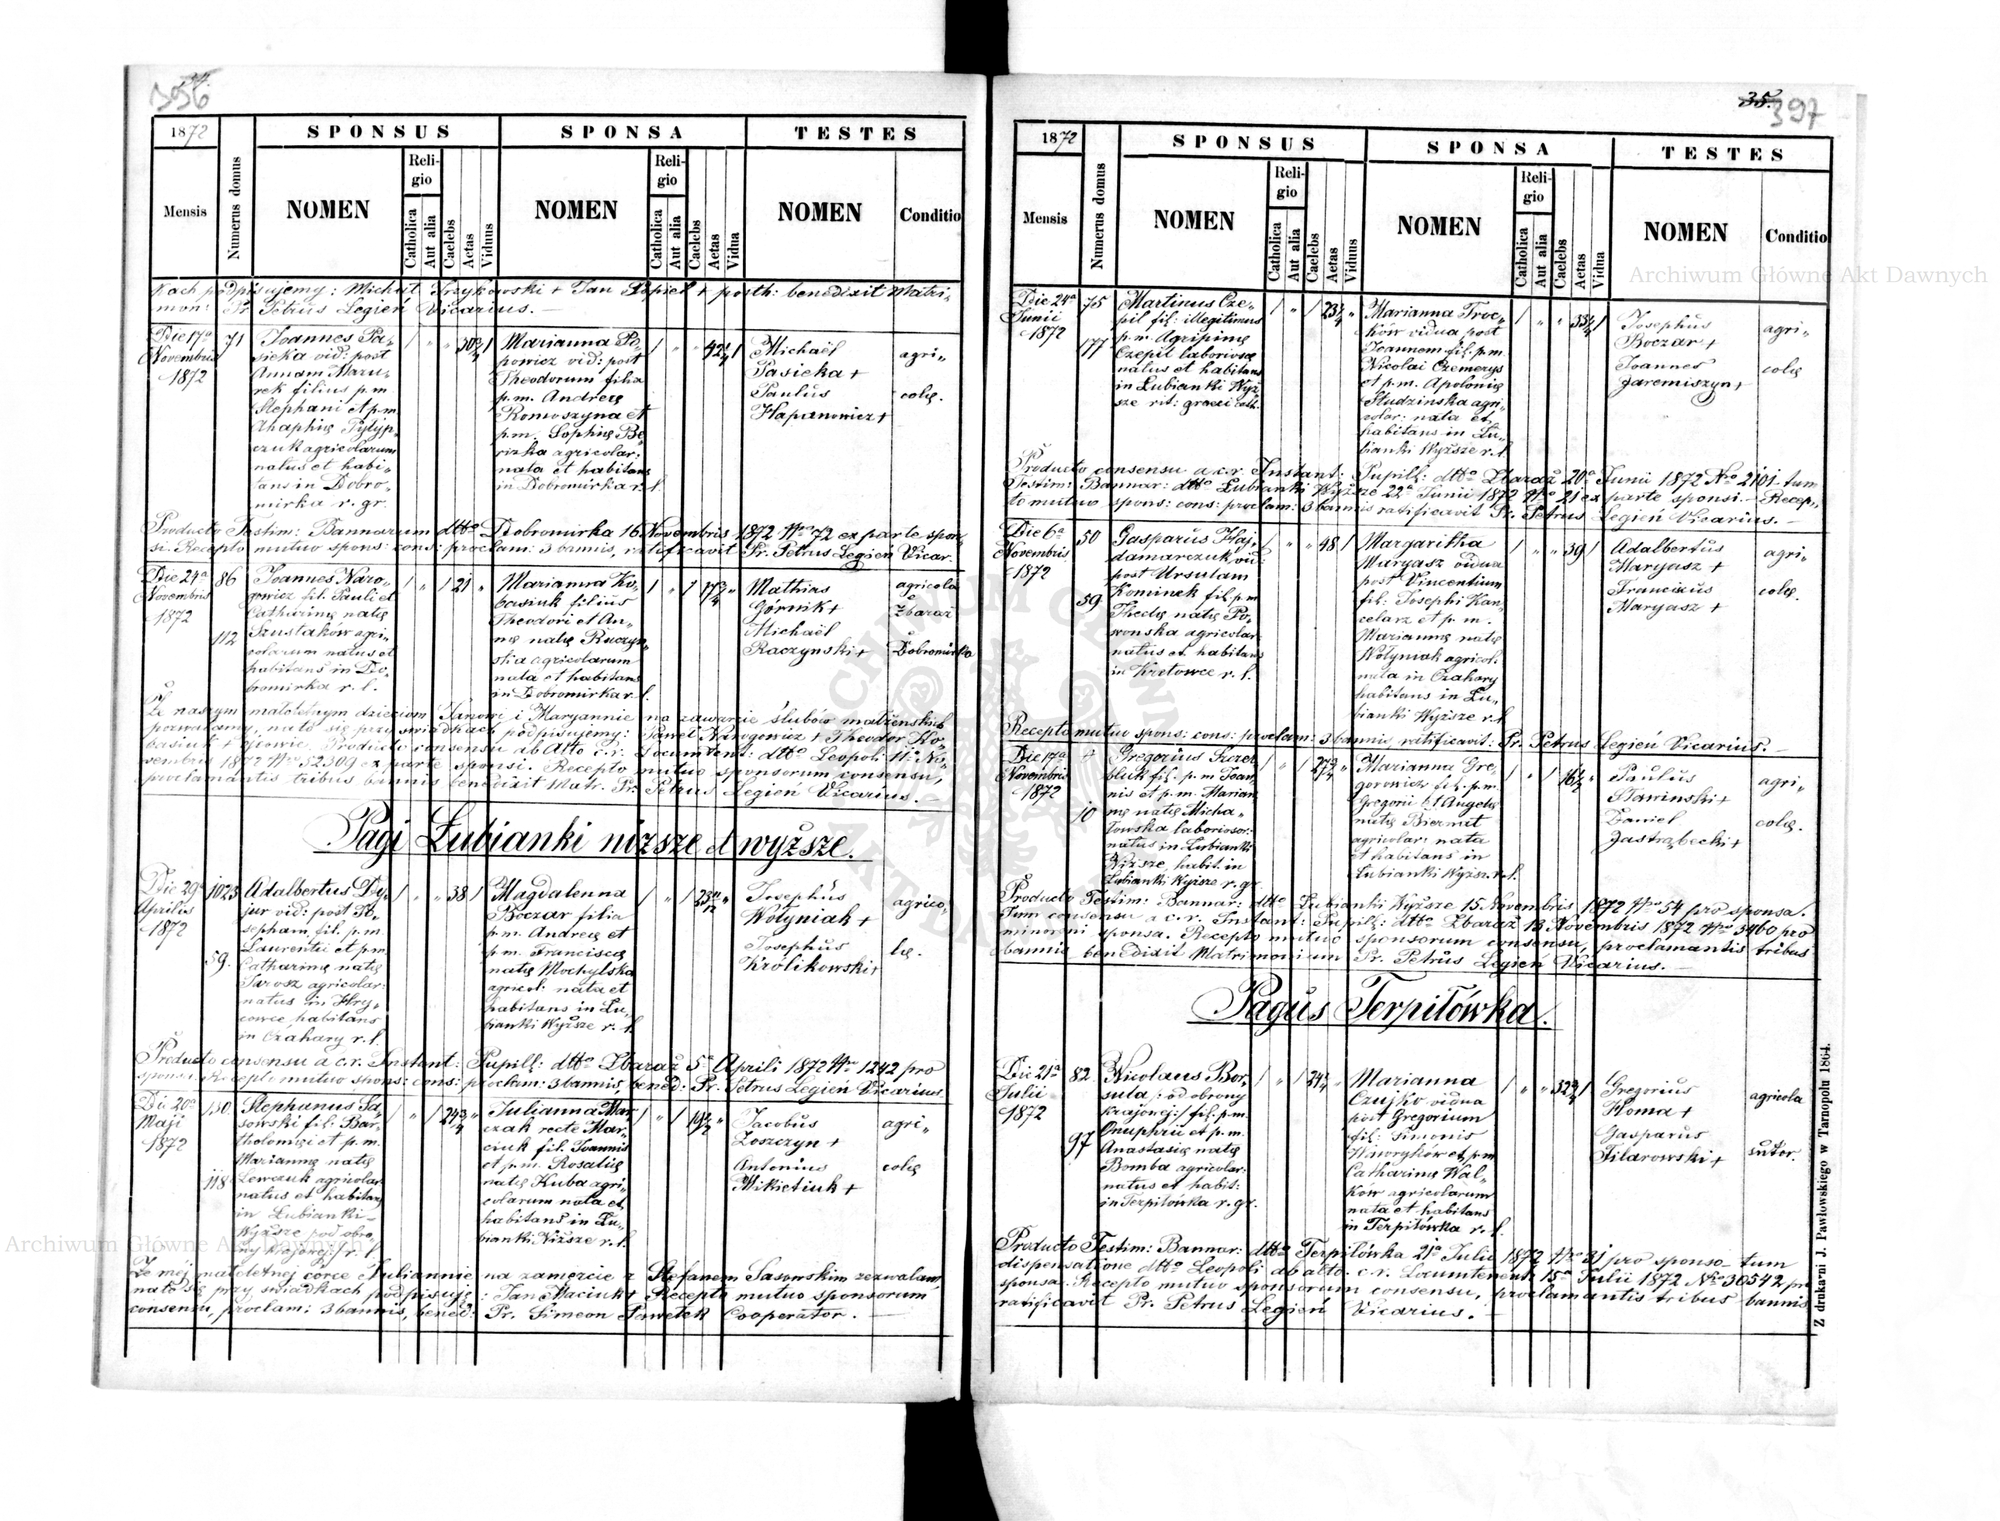 34.
396
1872
SPONSUS
SPONSA
TESTES
Mensis
Numerus domus
NOMEN
Religio
Catholica
Aut alia
Caelebs
Aetas
Viduus
NOMEN
Religio
Catholica
Aut alia
Caelebs
Aetas
Vidua
NOMEN
Conditio
podpisujemy: Michał + Jan + posth: benedixit Matri„
mon: Pr Petrus Legień Vicarius. —
Die 17a
Novembris
1872
71
Joannes Pa„
sieka vid: post
Annam Mazu„
rek filius p.m
Stephani et p.m.
Ahaphię Pylyp„
czuk agricolarum
natus et habi„
tans in Dobro„
mirka r. gr.
Marianna Po„
powicz vid: post
Theodorum filia
p.m. Andreę
Romoszyna et
p.m. Sophię Be„
rizka agricolar:
nata et habitans
in Dobromirka r. l.
Michaël
Pasieka +
Paulus
Hapanowicz +
agri„
colę.
Producto Testim: Bannorum dtto Dobromirka 16 Novembris 1872 Nro 72 ex parte spon„
si. Recepto mutuo spons: cons: proclam: 3 bannis, ratificavit Pr. Petrus Legień Vicar.
Die 24a
Novembris
1872
86
112
Joannes Naro„
gowicz fil. Pauli et
Catharinę natę
Szustaków agri„
colarum natus et
habitans in Do„
bromirka r. l.
21
Marianna Ko„
basiuk filius
Theodori et An„
nę natę Raczyn„
ska agricolarum
nata et habitans
in Dobromirka r. l.
Mathias
Górnik +
Michaël
Raczynski +
agricola
Zbaraż
Dobromirka
Że naszym małoletnym dzieciom Janowi i Maryannie na zawarcie ślubów małżenskich
pozwalamy, nato się przy świadkach podpisujemy: Paweł Narogowicz + Theodor Ko„
basiuk + ojcowie. Producto consensu ab Alto c.r. Locumtent: dtto Leopoli 11a No„
vembris 1872 Nro 52309 ex parte sponsi. Recepto mutuo sponsorum consensu,
proclamantis tribus bannis benedixit Matr. Pr. Petrus Legień Vicarius. —
Pagi Łubianki niższe et wyższe.
Die 29a
Aprilis
1872
1023
59.
Adalbertus Du„
jur vid: post Jo„
sepham, fil. p.m.
Laurentii et p.m.
Catharinę natę
Jarosz agricolar:
natus in Hry„
cowce habitans
in Czahary r. l.
38
Magdalenna
Boczar filia
p.m. Andreę et
p.m. Franciscę
natę Mochylska
agricol: nata et
habitans in Łu„
bianki Wyższe r. l.
Josephus
Wołyniak +
Josephus
Królikowski +
agrico„
lę.
Producto consensu a c.r. Instant: Pupill: dtto Zbaraż 5a Aprili 1872 Nro 1242 pro
sponsi. Recepto mutuo spons: cons: proclam: 3 bannis, bened: Pr. Petrus Legień Vicarius.
Die 20a
Maji
1872
130
118
Stephanus Sa„
sowski fil: Bar„
tholomęi et p.m.
Mariannę natę
Lewczuk agricolar:
natus et habitans
in Łubianki
Wyższe pod obro„
ny krajowej:/ r. l.
Julianna Mar„
czak recte Mar„
ciuk fil. Joannis
et p.m. Rosalię
natę Kuba agri„
colarum nata et
habitans in Łu„
bianki Niższe r. l.
Jacobus
Zoszczyn +
Antonius
Mikietiuk +
agri„
colę
Że mój małoletnej córce Juliannie na zamęzcie z Stefanem Sasowskim zezwalam,
nato się przy świadkach podpisuję: Jan Maciuk + Recepto mutuo sponsorum
consensu, proclam: 3 bannis, bened: Pr. Simeon Pawełek Cooperator. —
35.
397
1872
SPONSUS
SPONSA
TESTES
Mensis
Numerus domus
NOMEN
Religio
Catholica
Aut alia
Caelebs
Aetas
Viduus
NOMEN
Religio
Catholica
Aut alia
Caelebs
Aetas
Vidua
NOMEN
Conditio
Die 24a
Junii
1872
75
177
Martinus Cze„
pil fil: illegitimus
p.m. Agripinę
Czepil laboriosę
natus et habitans
in Łubianki Wyż„
sze rit: graeci cath.
Marianna Troc„
ków vidua post
Joannem fil. p.m.
Nicolai Czemerys
et p.m. Apolonię
Studzinska agri„
colar: nata et
habitans in Łu„
bianki Wyższe r. l.
Josephus
Boczar +
Joannes
Jaremiszyn +
agri„
colę
Producto consensu a c.r. Instant: Pupill: dtto Zbaraż 20a Junii 1872 Nro 2101 tum
Testim: Bannar: dtto Łubianki Wyższe 22a Junii 1872 Nro 21 ex parte sponsi. – Recep„
to mutuo spons: cons: proclam: 3 bannis ratificavit Pr. Petrus Legień Vicarius. —
Die 6a
Novembris
1872
50
59
Gasparus Haj„
damarczuk vid:
post Ursulam
Kominek fil. p.m
Theclę natę Po„
wonska agricolar:
natus et habitans
in Kretowce r. l.
48
Margaritha
Maryasz vidua
post Vincentium
fil: Josephi Kan„
celarz et p. m.
Mariannę natę
Wołyniak agricol:
nata in Czahary
habitans in Łu„
bianki Wyższe r. l.
39
Adalbertus
Maryasz +
Franciscus
Maryasz +
agri„
colę.
Recepto mutuo spons: cons: proclam: 3 bannis ratificavit: Pr. Petrus Legień Vicarius. —
Die 17a
Novembris
1872
4
10
Gregorius Kurel
bluk fil. p.m Joan„
nis et p.m. Marian„
nę natę Micha„
łowska laboriosor:
natus in Łubianki
Niższe, habit. in
Łubianki Wyższe r. gr.
Marianna Gre„
gorowicz fil. p.m.
Gregorii et Angelę
natę Biernat
agricolar: nata
et habitans in
Łubianki Wyższ. r. l.
Paulus
Stawinski +
Daniel
Jastrąbecki +
agri„
colę.
Producto Testim: Bannar: dtto Łubianki Wyższe 15. Novembris 1872 Nro 54 pro sponsa.
Tum consensu a c.r. Instant: Pupill: dtto Zbaraż 13 Novembris 1872 Nro 3460 pro
minoreni sponsa. Recepto mutuo sponsorum consensu, proclamantis tribus
bannis benedixit Matrimonium Pr. Petrus Legień Vicarius. —
Pagus Terpiłówka.
Die 21a
Julii
1872
82
97
Nicolaus Bor„
sula /: od obrony
krajowej:/ fil. p.m.
Onuphrii et p.m.
Anastasię natę
Bomba agricolar:
natus et habit:
in Terpiłówka r. gr.
Marianna
Czujko vidua
post Gregorium
fil: Simonis
Hawryków et p.m
Catharinę Wal„
ków agricolarum
nata et habitans
in Terpiłówka r. l.
Gregorius
Homa +
Gasparus
Filarowski +
agricola
sutor.
Producto Testim: Bannar: dtto Terpiłówka 21a Julii 1872 Nro 31 pro sponso – tum
dispensatione dtto Leopoli ab alto. c.r. Locumtenent: 15a Julii 1872 Nro 30542 pro
sponsa. Recepto mutuo sponsorum consensu, proclamantis tribus bannis
ratificavit Pr. Petrus Legień Vicarius. —
Z drukarni J. Pawłowskiego w Tarnopolu 1864.
Archiwum Główne Akt Dawnych
Archiwum Główne Akt Dawnych